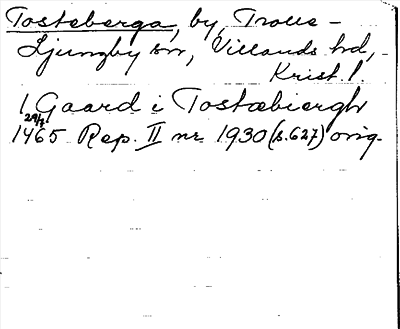 Tosteberga, by, Trolle-
Ljungby sn, Villands hd,
Krist. l.
1 Gaard i Tostæbiergh
29/7
1465 Rep. II nr 1930 (s. 627) orig.